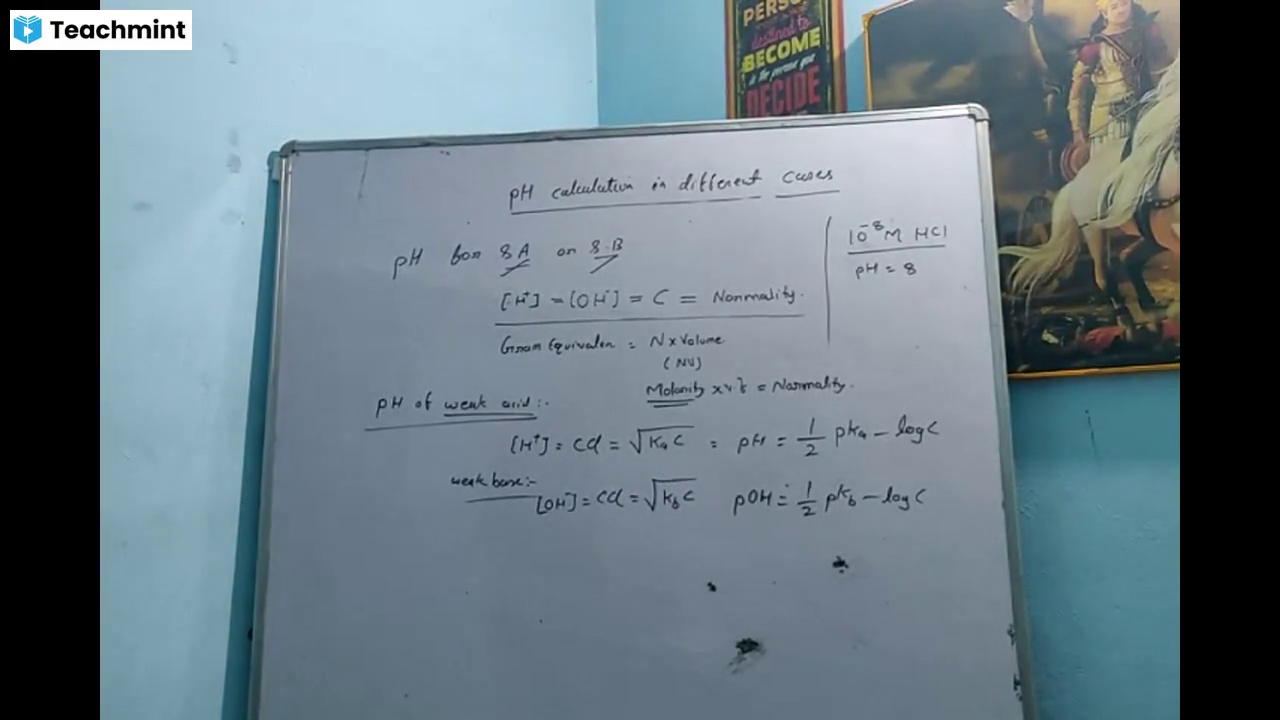 Teachmint
PERSO
destined to
BECOME
is the person you
DECIDE
pH calculation in different cases
pH for S.A or S.B
[H⁺] = [OH⁻] = C = Normality.
Gram Equivalen = N x Volume
(NV)
Molarity x v.f = Normality.
10⁻⁸ M HCl
pH = 8
pH of weak acid :-
[H⁺] = Cα = √KaC = pH = 1/2 pKa - log C
weak base :-
[OH⁻] = Cα = √KbC pOH = 1/2 pKb - log C